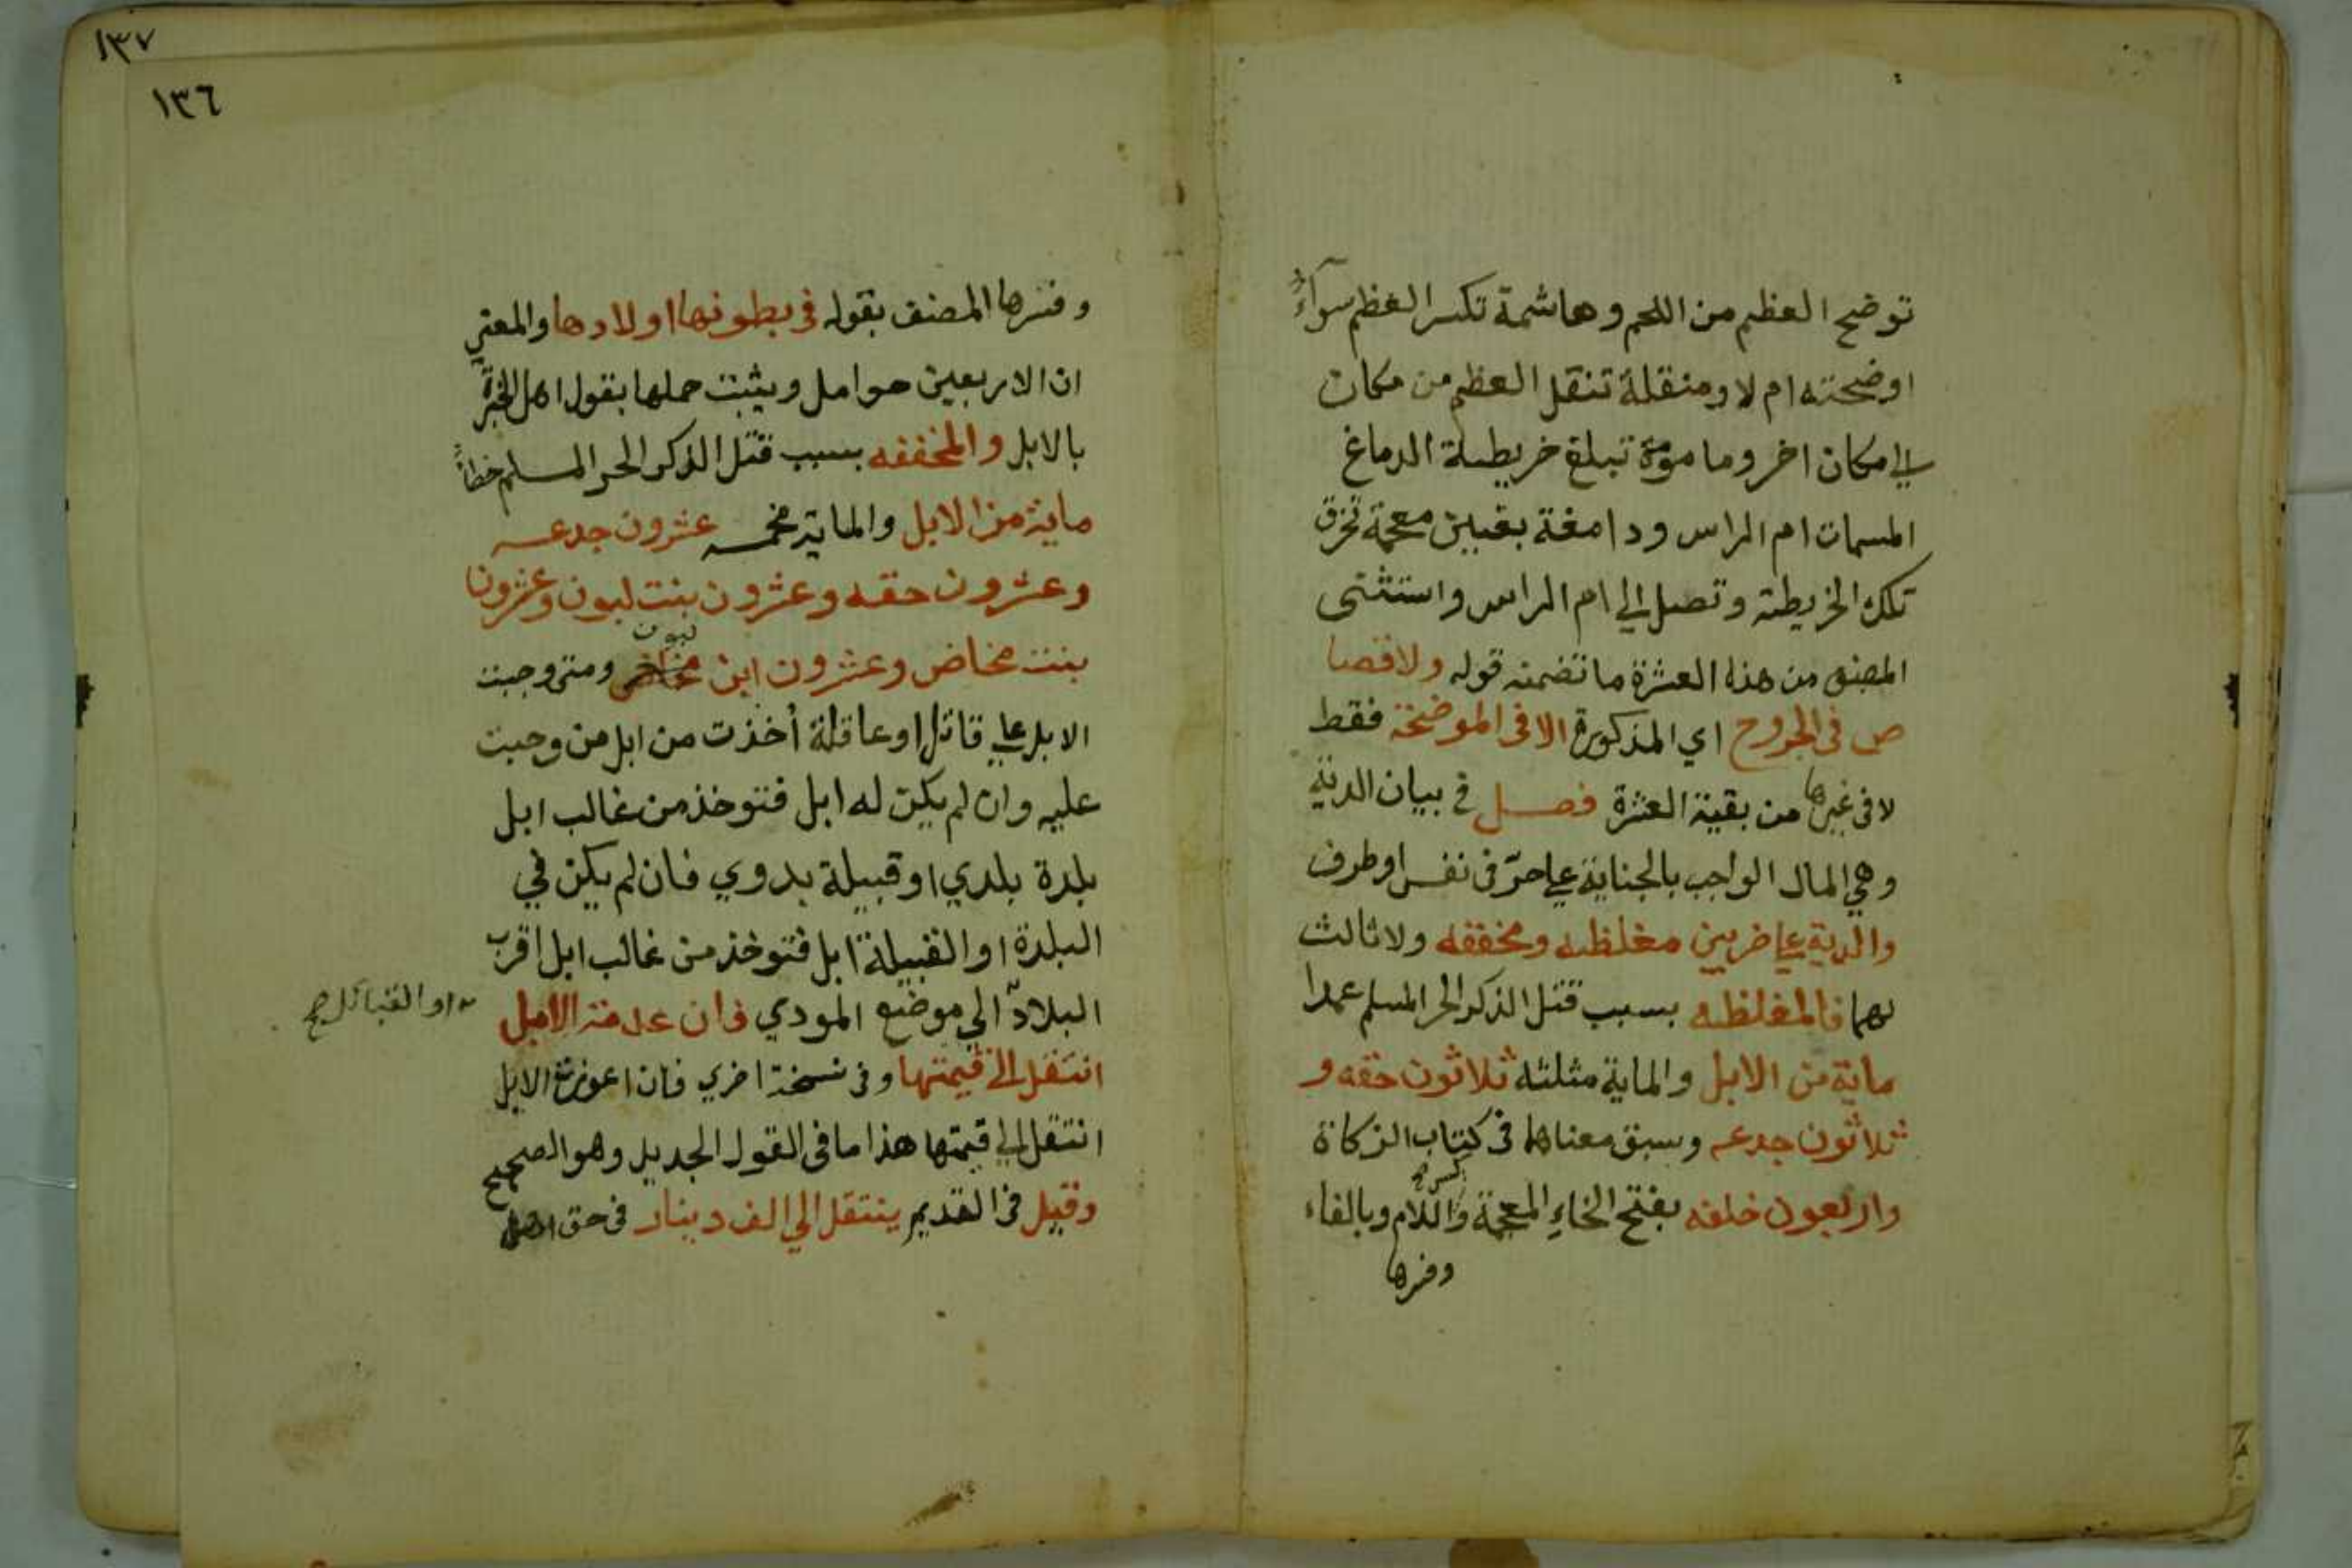 توضح العظم من اللحم وهاشمة تكسر العظم سوآءً
اوضحته ام لا ومنقلة تنقل العظم من مكان
الي مكان اخر ومامومة تبلغ خريطة الدماغ
المسمات ام الراس ودامغة بغين معجمة تخرق
تلك الخريطة وتصل الي ام الراس واستثنى
المصنف من هذه العشرة ما تضمنه قوله ولا قصا
ص في الجروح اي المذكورة الا في الموضحة فقط
لا في غيرها من بقية العشرة فصل في بيان الدية
وهي المال الواجب بالجناية علي حرّ في نفس او طرف
والدية علي ضربين مغلظه ومخففه ولا ثالث
لهما فالمغلظه بسبب قتل الذكر الحر المسلم عمدا
ماية من الابل والماية مثلثه ثلاثون حقه و
ثلاثون جدعه وسبق معناهما في كتاب الزكاة
واربعون خلفه بفتح الخاءِ المعجمة وكسر اللام وبالفاء
وفسرها
١٣٧
١٣٦
وفسرها المصنف بقوله في بطونها اولادها والمعني
ان الاربعين حوامل ويثبت حملها بقول اهل الخبرة
بالابل والمخففه بسبب قتل الذكر الحر المسلم خطأً
ماية من الابل والماية مخمسه عشرون جدعه
وعشرون حقه وعشرون بنت لبون وعشرون
بنت مخاض وعشرون ابن لبون ومتى وجبت
الابل علي قاتل او عاقلة أخذت من ابل من وجبت
عليه وان لم يكن له ابل فتوخذ من غالب ابل
بلدة بلدي او قبيلة بدوي فان لم يكن في
البلدة او القبيلة ابل فتوخذ من غالب ابل اقرب
البلاد الي موضع المودي فان عدمت الابل
او القبائل صح
انتقل الى قيمتها وفي نسخة اخري فان اعوزت الابل
انتقل الي قيمتها هذا ما في القول الجديد وهو الصحيح
وقيل في القديم ينتقل الي الف دينار في حق اهل